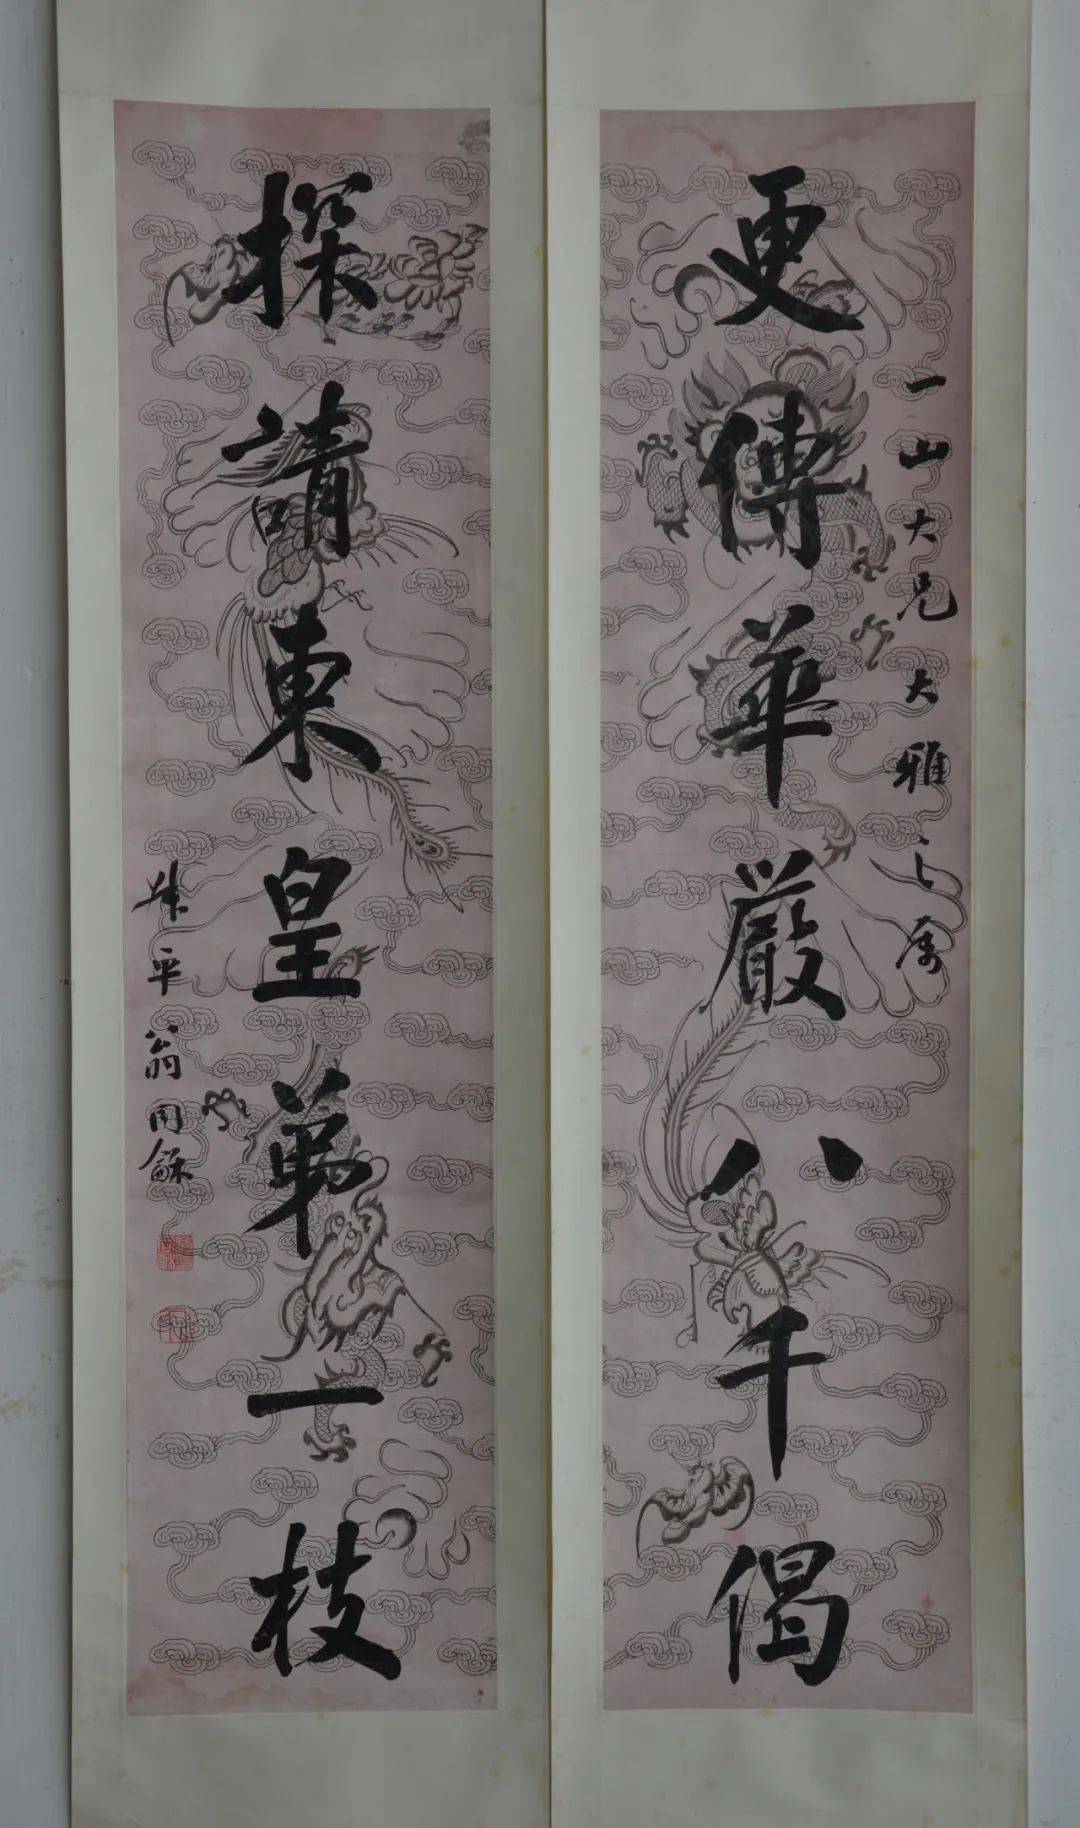 一山大兄大雅之屬
更傳華嚴八千偈
探請東皇弟一枝
叔平翁同龢